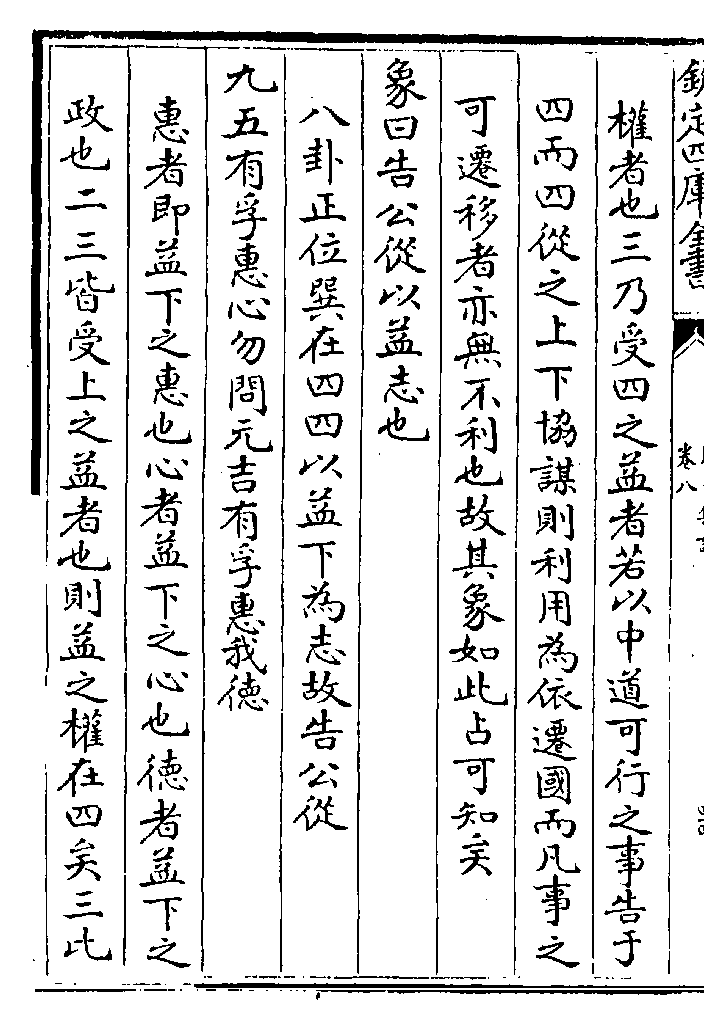 欽定四庫全書
卷八
權者也三乃受四之益者若以中道可行之事告于
四而四從之上下協謀則利用為依遷國而凡事之
可遷移者亦無不利也故其象如此占可知矣
象曰告公從以益志也
八卦正位巽在四四以益下為志故告公從
九五有孚惠心勿問元吉有孚惠我德
惠者即益下之惠也心者益下之心也德者益下之
政也二三皆受上之益者也則益之權在四矣三比